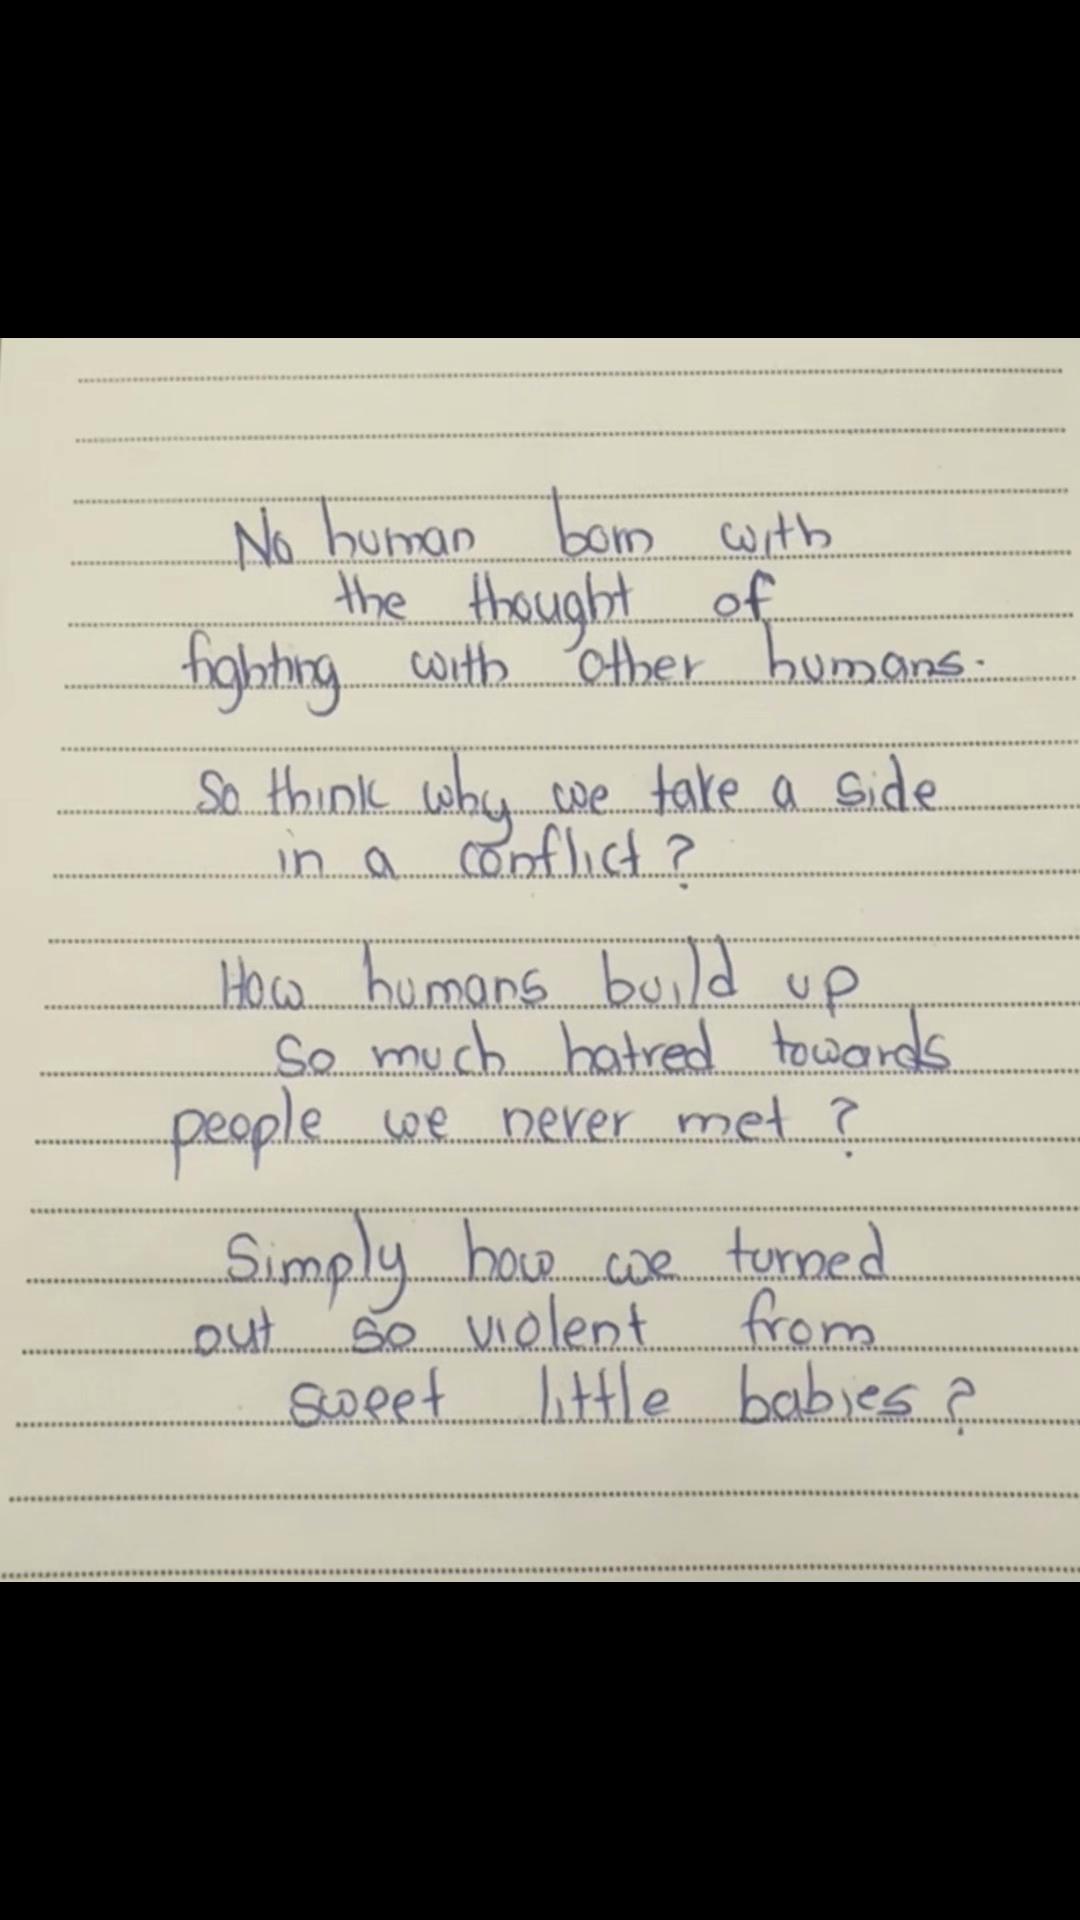 No human born with
the thought of
fighting with other humans.
So think why we take a side
in a conflict?
How humans build up
so much hatred towards
people we never met?
Simply how we turned
out so violent from
sweet little babies?